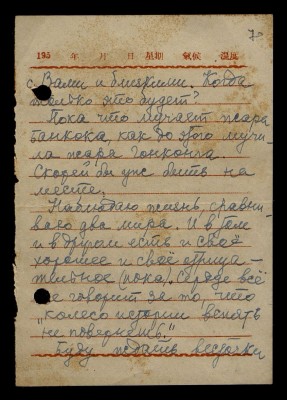 7
195 年 月 日 星期 氣候 溫度
с Вами и близкими. Когда
только это будет?
Пока что мучает жара
Банкока, как до этого мучи
ла жара Гонконга.
Скорей бы уж быть на
месте.
Наблюдаю жизнь, сравни
ваю два мира. И в том
и в другом есть и своё
хорошее и своё отрица-
тельное (пока). Сердце всё
же говорит за то, что
"колесо истории вспять
не повернешь."
Буду ждать весточки